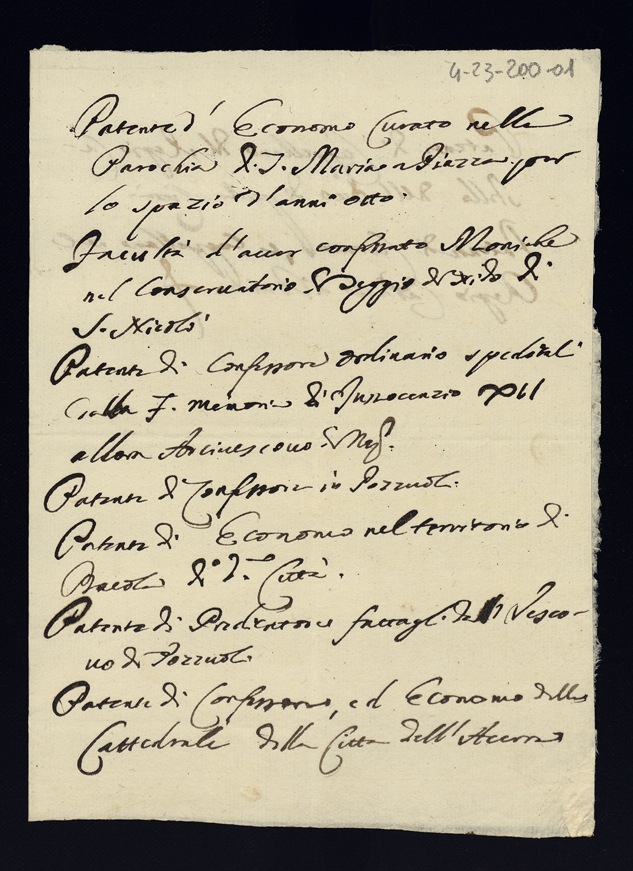 4-23-200-01
Patente d' Economo Curato nella
Parochia di S. Maria a Piazza per
lo spazio d'anni otto.
Facultà d'aver confessato Moniche
nel Conservatorio di
S. Nicolò
Patente di Confessore ordinario speditali
dalla F. memoria di Innocenzio XII
allora Arcivescovo di Nap.
Patente di Confessore in Pozzuoli.
Patente di Economo nel territorio di
di Città.
Patente di Predicatore fattagli dall Vesco-
vo di Pozzuoli
Patente di Confessore, ed Economo della
Cattedrale della Città dell'Acerra